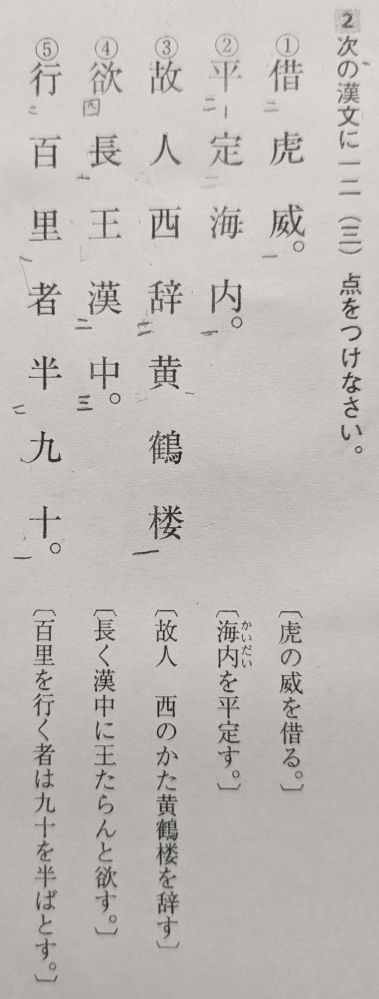 2 次の漢文に一二(三)点をつけなさい。
① 借二虎威一。
② 平二定海内一。
③ 故人西辞二黄鶴楼一
④ 欲四長王二漢中三。
⑤ 行二百里一者半二九十一。
〔虎の威を借る。〕
〔海内を平定す。〕
かいだい
〔故人 西のかた黄鶴楼を辞す〕
〔長く漢中に王たらんと欲す。〕
〔百里を行く者は九十を半ばとす。〕